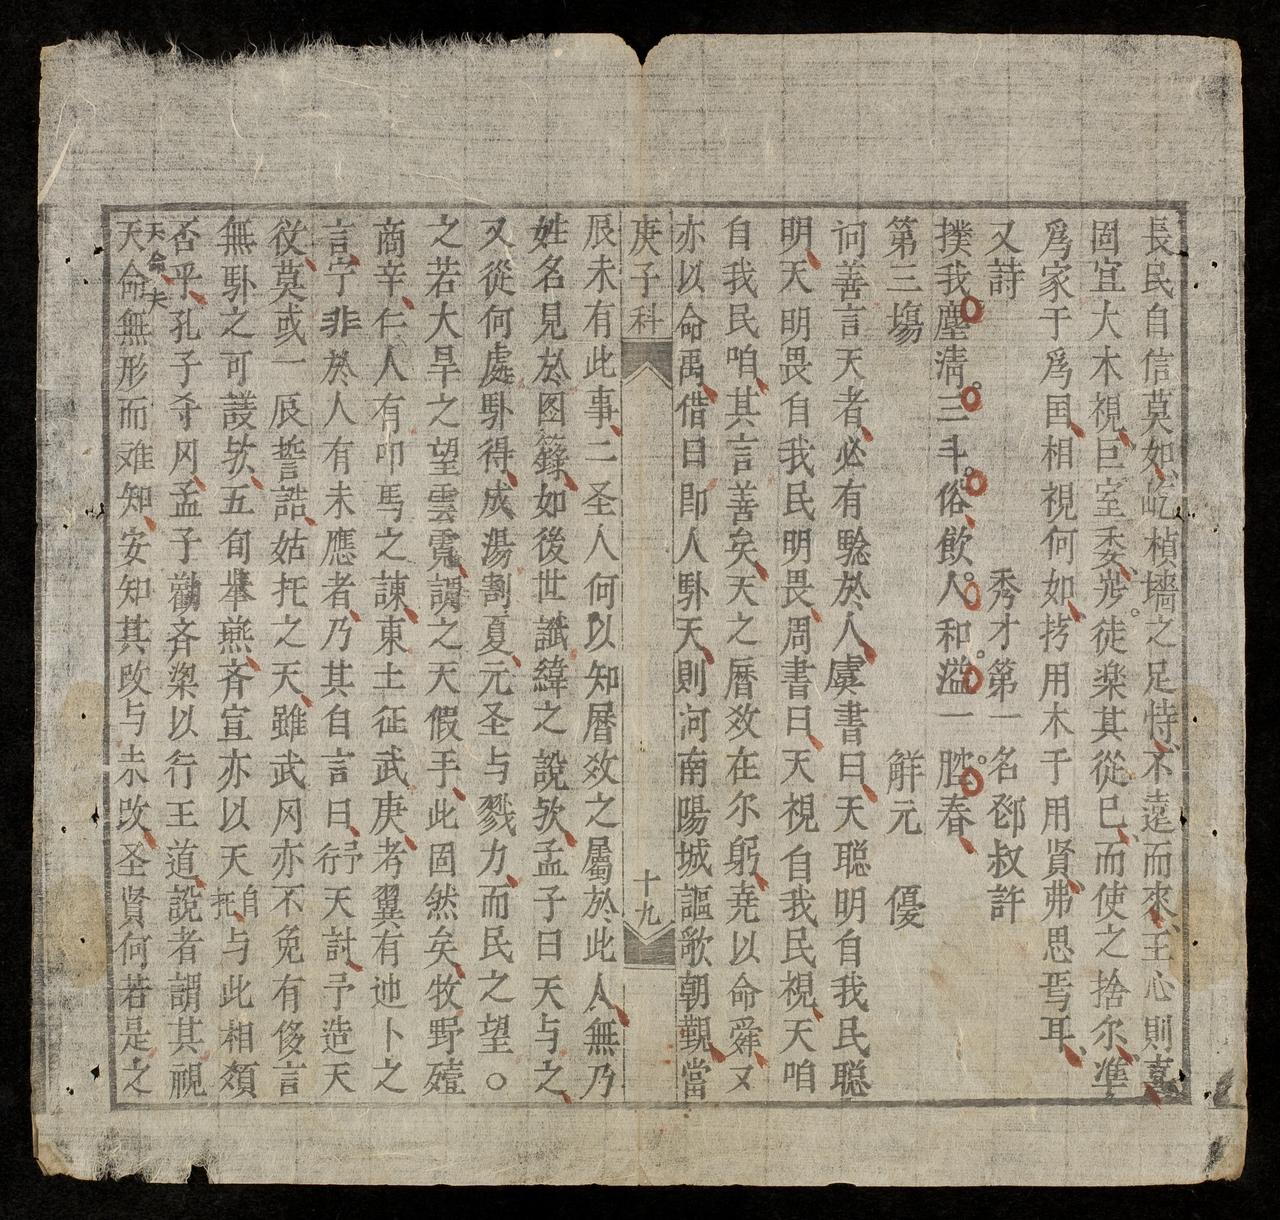 長民自信莫如屹楨墻之足恃不遠而來王心則喜
固宜大木視巨室委茀徒楽其從已而使之捨尔準
爲家于爲囯相視何如捞用木于用賢弗思焉耳
又詩 秀才第一名邳叔許
撲我塵清三斗俗飲人和溢一腔春
第三塲 解元 優
问善言天者必有騐於人虞書曰天聪明自我民聪
明天明畏自我民明畏周書曰天視自我民視天咱
自我民咱其言善矣天之曆效在尔躬堯以命舜又
亦以命禹借曰卽人卧天則河南陽城謳歌朝覲當
庚子科 十九
辰未有此事二圣人何以知曆效之屬於此人無乃
姓名見於图籙如後世讖緯之說欤孟子曰天与之
又從何處卧得成湯割夏元圣与戮力而民之望○
之若大旱之望雲霓謂之天假手此固然矣牧野殪
商辛仁人有叩馬之諫東土征武庚考翼有迆卜之
言宁非於人有未應者乃其自言曰予行天討予造天
役莫或一辰誓誥姑托之天雖武冈亦不免有侈言
無卧之可護欤五旬舉燕斉宣亦以天自托与此相類
否乎孔子夲冈孟子勸斉梁以行王道說者謂其視
天命夫
天命無形而难知安知其改与未改圣賢何若是之